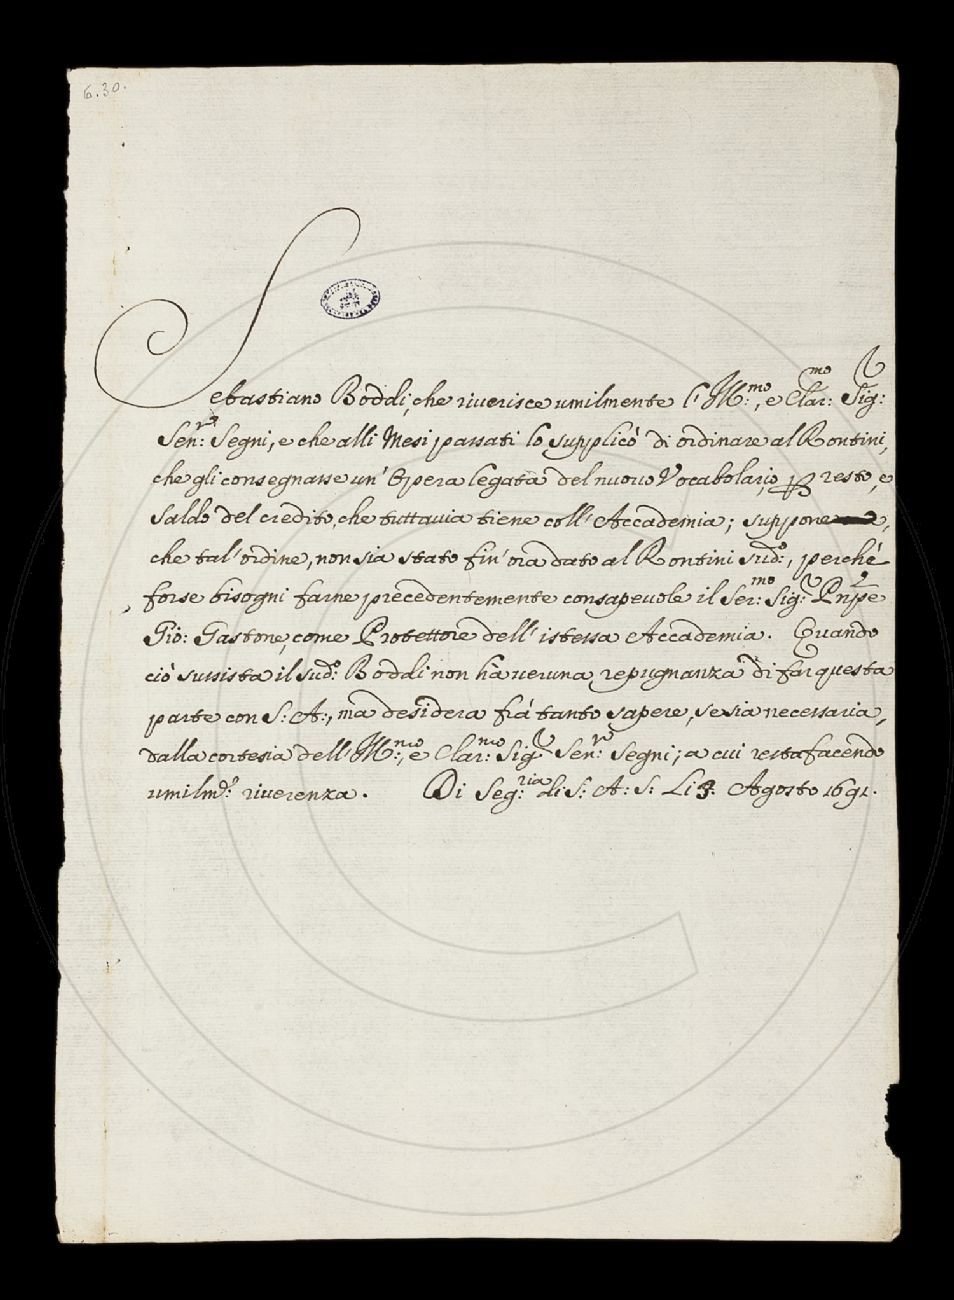 6.30.
Sebastiano Boddi, che riverisce umilmente l'Ill:mo, e Clar:mo Sig:
Sen:re Segni, e che alli Mesi passati lo supplicò di ordinare al Rontini,
che gli consegnasse un' Opera legata del nuovo Vocabolario, resto, e
Saldo del credito, che tuttavia tiene coll' Accademia; suppone,
che tal' ordine, non sia stato fin' ora dato al Rontini sud:o, perché
forse bisogni farne precedentemente consapevole il Ser:mo Sig:r Pnpe
Gio: Gastone, come Protettore dell' istessa Accademia. Quando
ciò sussista il sud:o Boddi non hà veruna repugnanza di far questa
parte con S: A:, mà desidera frà tanto sapere, se sia necessaria,
dalla cortesia dell' Ill:mo, e Clar:mo Sig:r Sen:re Segni; a cui resta facendo
umilm:e riverenza. Di Seg:ria di S: A: S: Li Agosto 1691.